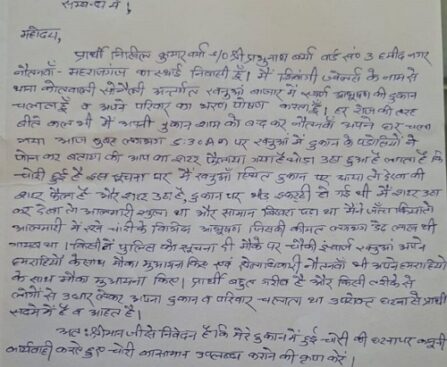 सम्बन्ध में।
महोदय,
प्रार्थी निखिल कुमार वर्मा s/o श्री प्रभुनाथ वर्मा वार्ड सं० 3 हमीद नगर
नौतनवाँ - महराजगंज का स्थाई निवासी हूँ। मैं ज्वेलर्स के नाम से
थाना कोतवाली सोनौली अन्तर्गत खनुआँ बाजार में आभूषण की दुकान
चलाता हूँ व अपने परिवार का भरण पोषण करता हूँ। हर रोज की तरह
बीते कल भी मैं अपनी दुकान शाम को बन्द कर नौतनवाँ अपने घर चला
गया आज सुबह लगभग 5:30AM पर खनुआँ में दुकान के पड़ोसियों ने
फोन कर बताया की आप का शटर गया है थोड़ा उठा हुआ है लगता है कि
चोरी हुई है इस सूचना पर मैं खनुआँ स्थित दुकान पर आया तो देखा की
शटर फैला है और शटर उठा है, दुकान पर भीड़ इकट्ठी हो गई थी मैं शटर उठा
कर देखा तो आलमारी खुला था और सामान बिखरा पड़ा था मैंने जाँच किया तो
आलमारी में रखे चांदी के विभिन्न आभूषण जिसकी कीमत लगभग डेढ़ लाख थी
गायब था। किसी ने पुलिस को सूचना दी मौके पर चौकी इंचार्ज खनुआँ अपने
हमराहियों के साथ मौका मुआयना किए एवं क्षेत्राधिकारी नौतनवाँ भी अपने हमराहियों
के साथ मौका मुआयना किए। प्रार्थी बहुत गरीब है और किसी तरीके से
लोगों से उधार लेकर अपना दुकान व परिवार चलाता था उपरोक्त घटना से प्रार्थी
सदमे में है व आहत है।
अतः श्रीमान जी से निवेदन है कि मेरे दुकान में हुई चोरी की घटना पर कानूनी
कार्यवाही करते हुए चोरी का सामान उपलब्ध कराने की कृपा करें।